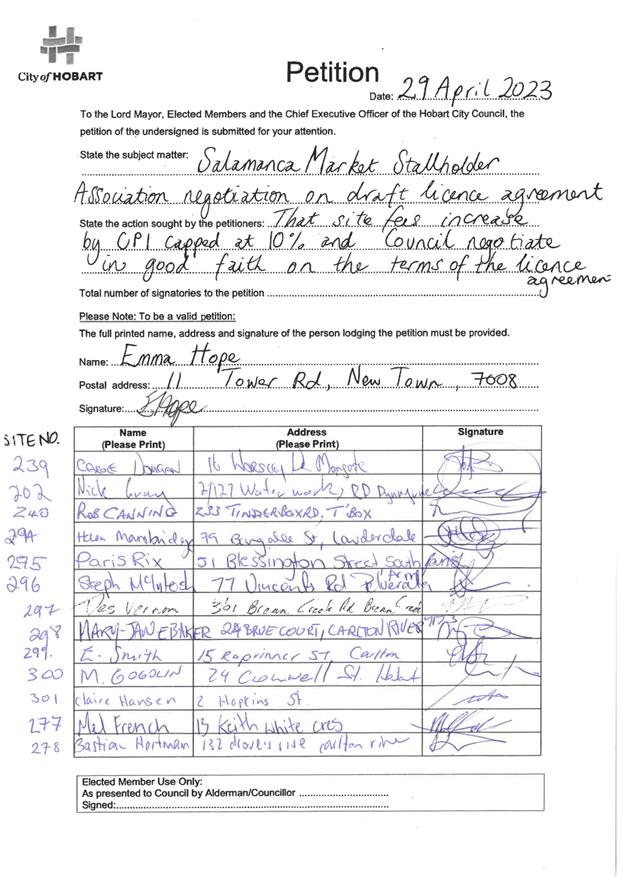 City of HOBART
Petition
Date: 29 April 2023
To the Lord Mayor, Elected Members and the Chief Executive Officer of the Hobart City Council, the
petition of the undersigned is submitted for your attention.
State the subject matter: Salamanca Market Stallholder
Association negotiation on draft licence agreement
State the action sought by the petitioners: That site fees increase
by CPI capped at 10% and Council negotiate
in good faith on the terms of the licence
agreement
Total number of signatories to the petition
Please Note: To be a valid petition:
The full printed name, address and signature of the person lodging the petition must be provided.
Name: Emma Hope
Postal address: 11 Tower Rd, New Town, 7008
Signature: E Hope
SITE NO. Name (Please Print) Address (Please Print) Signature
239 CAROLE 16
202 Nick Gray 2/127 Water works RD
240 ROB CANNING 233 TINDERBOX RD, T'BOX
294 Helen 79 St, Lauderdale
295 Paris Rix 51 Blessington Street South
296 Steph McIntosh 77 Vincents Rd
297 Des Vernon 361 Bream Creek Rd Bream Creek
298 MARY-JANE BAKER 24 COURT, CARLTON RIVER
299. E. Smith 15 St, Carlton
300 M. 24 Cromwell St. Hobart
301 Claire Hansen 2 Hopkins St.
277 Mel French 13 Keith White cres
278 Bastian Hortman 132 carlton river
Elected Member Use Only:
As presented to Council by Alderman/Councillor
Signed: